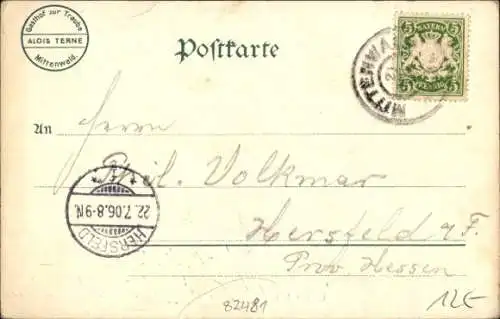 Gasthof zur Traube
ALOIS TERNE
Mittenwald.
Postkarte
BAYERN
5 5
PFENNIG
5 5
MITTENWA
An Herrn
Phil. Volkmar
Hersfeld
Prov. Hessen
22.7.06.8-9N.
HERSFELD
82481
12E